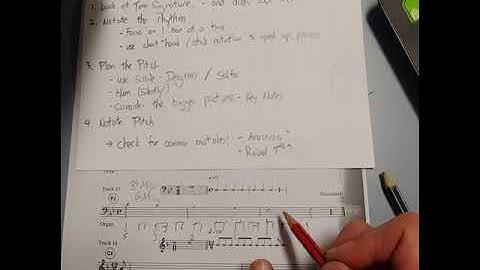 1. Look at Time Signature, - and
2. Notate the rhythm
- Focus on 1 bar at a time
- use short hand / stick notation to speed up process
3. Plan the Pitch
- use Scale - Degrees / Solfa
- Hum (silently)
- Consider the bigger picture - Key Notes
4. Notate Pitch
→ check for common mistakes! - Anacrusis
- Raised 7th
Track 13
Organ
Track 14